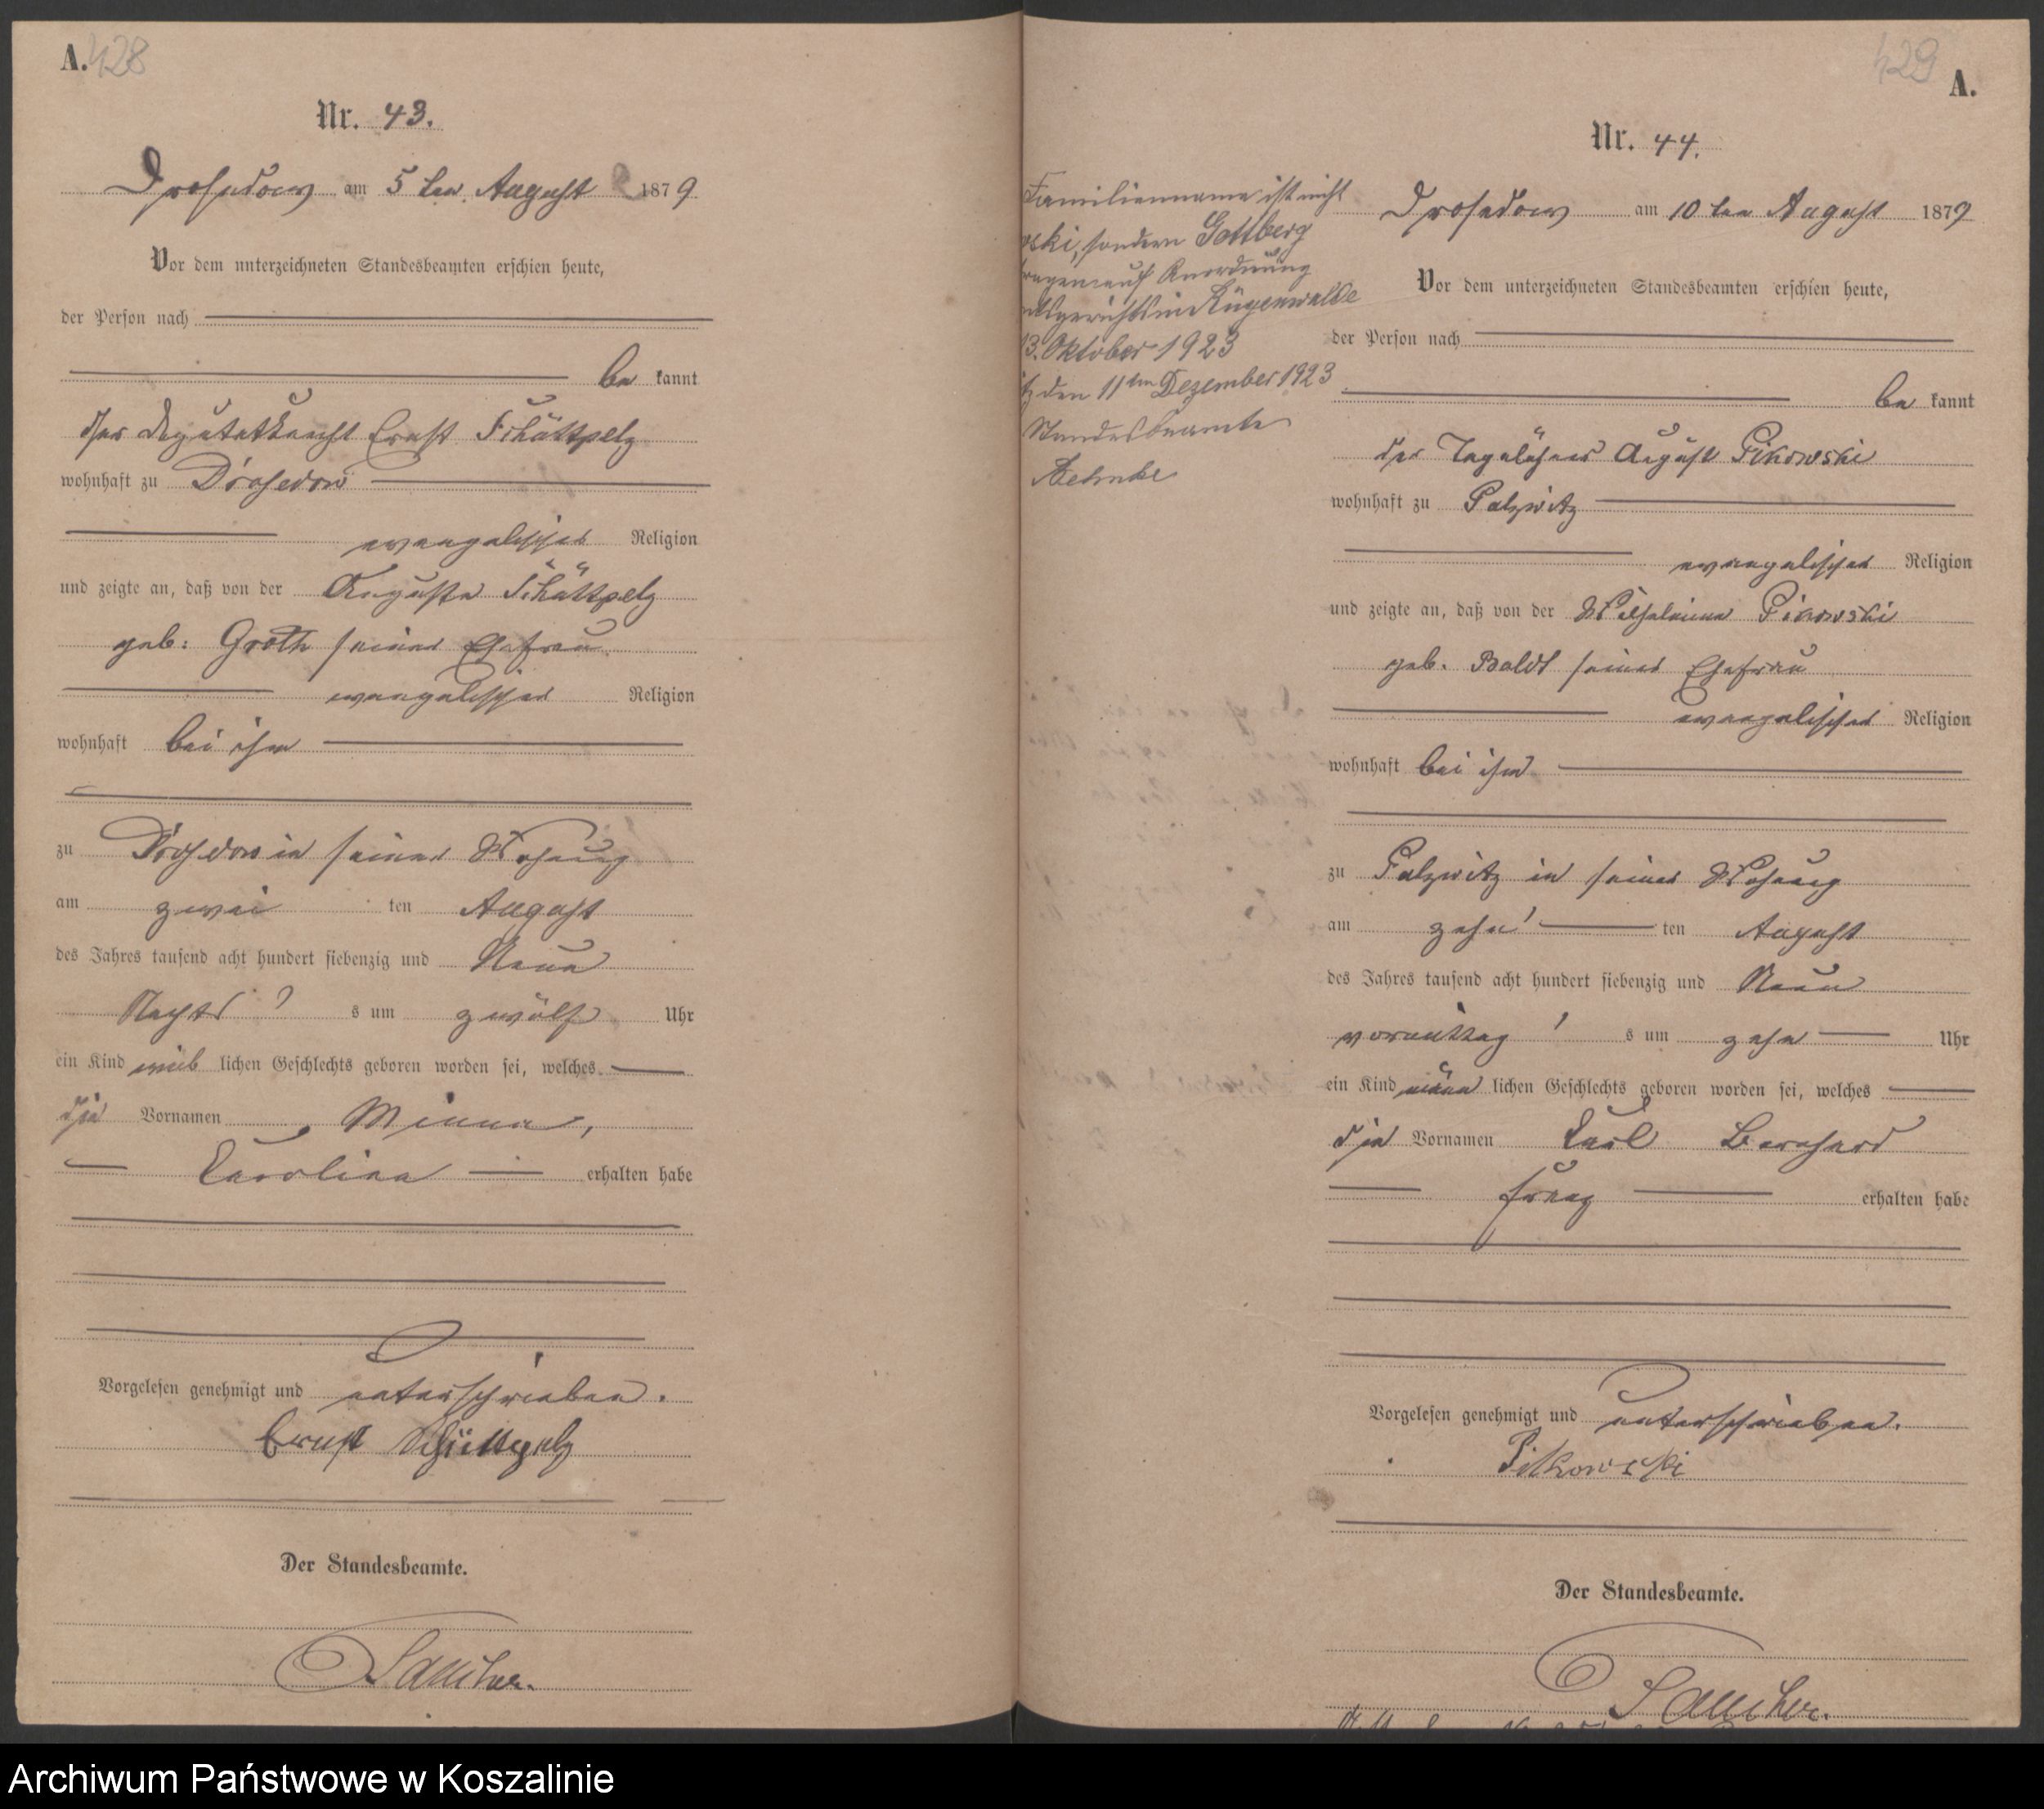 A. 428
Nr. 43.
Drosedow am 5 ten August 1879
Vor dem unterzeichneten Standesbeamten erschien heute,
der Person nach
be kannt
der Deputatknecht Ernst Schüttpelz
wohnhaft zu Drosedow
evangelischer Religion
und zeigte an, daß von der Auguste Schüttpelz
geb: Groth seiner Ehefrau
evangelischer Religion
wohnhaft bei ihm
zu Drosedow in seiner Wohnung
am zwei ten August
des Jahres tausend acht hundert siebenzig und Neun
Nachts s um zwölf Uhr
ein Kind weib lichen Geschlechts geboren worden sei, welches
die Vornamen Minna,
Caroline erhalten habe
Vorgelesen genehmigt und unterschrieben.
Ernst Schüttpelz
Der Standesbeamte.
429
A.
Nr. 44.
Familienname ist nicht
ski, sondern Gottberg
tragen auf Anordnung
tsgerichts in Rügenwalde
3. Oktober 1923
tz den 11ten Dezember 1923
Standesbeamte
Drosedow am 10 ten August 1879
Vor dem unterzeichneten Standesbeamten erschien heute,
der Person nach
be kannt
der Tagelöhner August Pikowski
wohnhaft zu Palzwitz
evangelischer Religion
und zeigte an, daß von der Wilhelmine Pikowski
geb. Boldt seiner Ehefrau
evangelischer Religion
wohnhaft bei ihm
zu Palzwitz in seiner Wohnung
am zehn ten August
des Jahres tausend acht hundert siebenzig und Neun
vormittag s um zehn Uhr
ein Kind männ lichen Geschlechts geboren worden sei, welches
die Vornamen Carl Bernhard
Franz erhalten habe
Vorgelesen genehmigt und unterschrieben.
Pikowski
Der Standesbeamte.
Archiwum Państwowe w Koszalinie